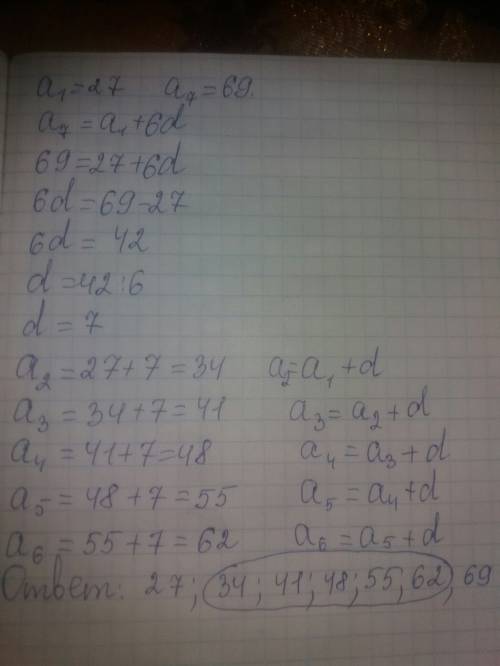 a₁=27 a₇=69.
a₇=a₁+6d
69=27+6d
6d=69-27
6d= 42
d=42:6
d=7
a₂=27+7=34 a₂=a₁+d
a₃=34+7=41 a₃=a₂+d
a₄=41+7=48 a₄=a₃+d
a₅=48+7=55 a₅=a₄+d
a₆=55+7=62 a₆=a₅+d
Ответ: 27; 34; 41; 48; 55; 62; 69